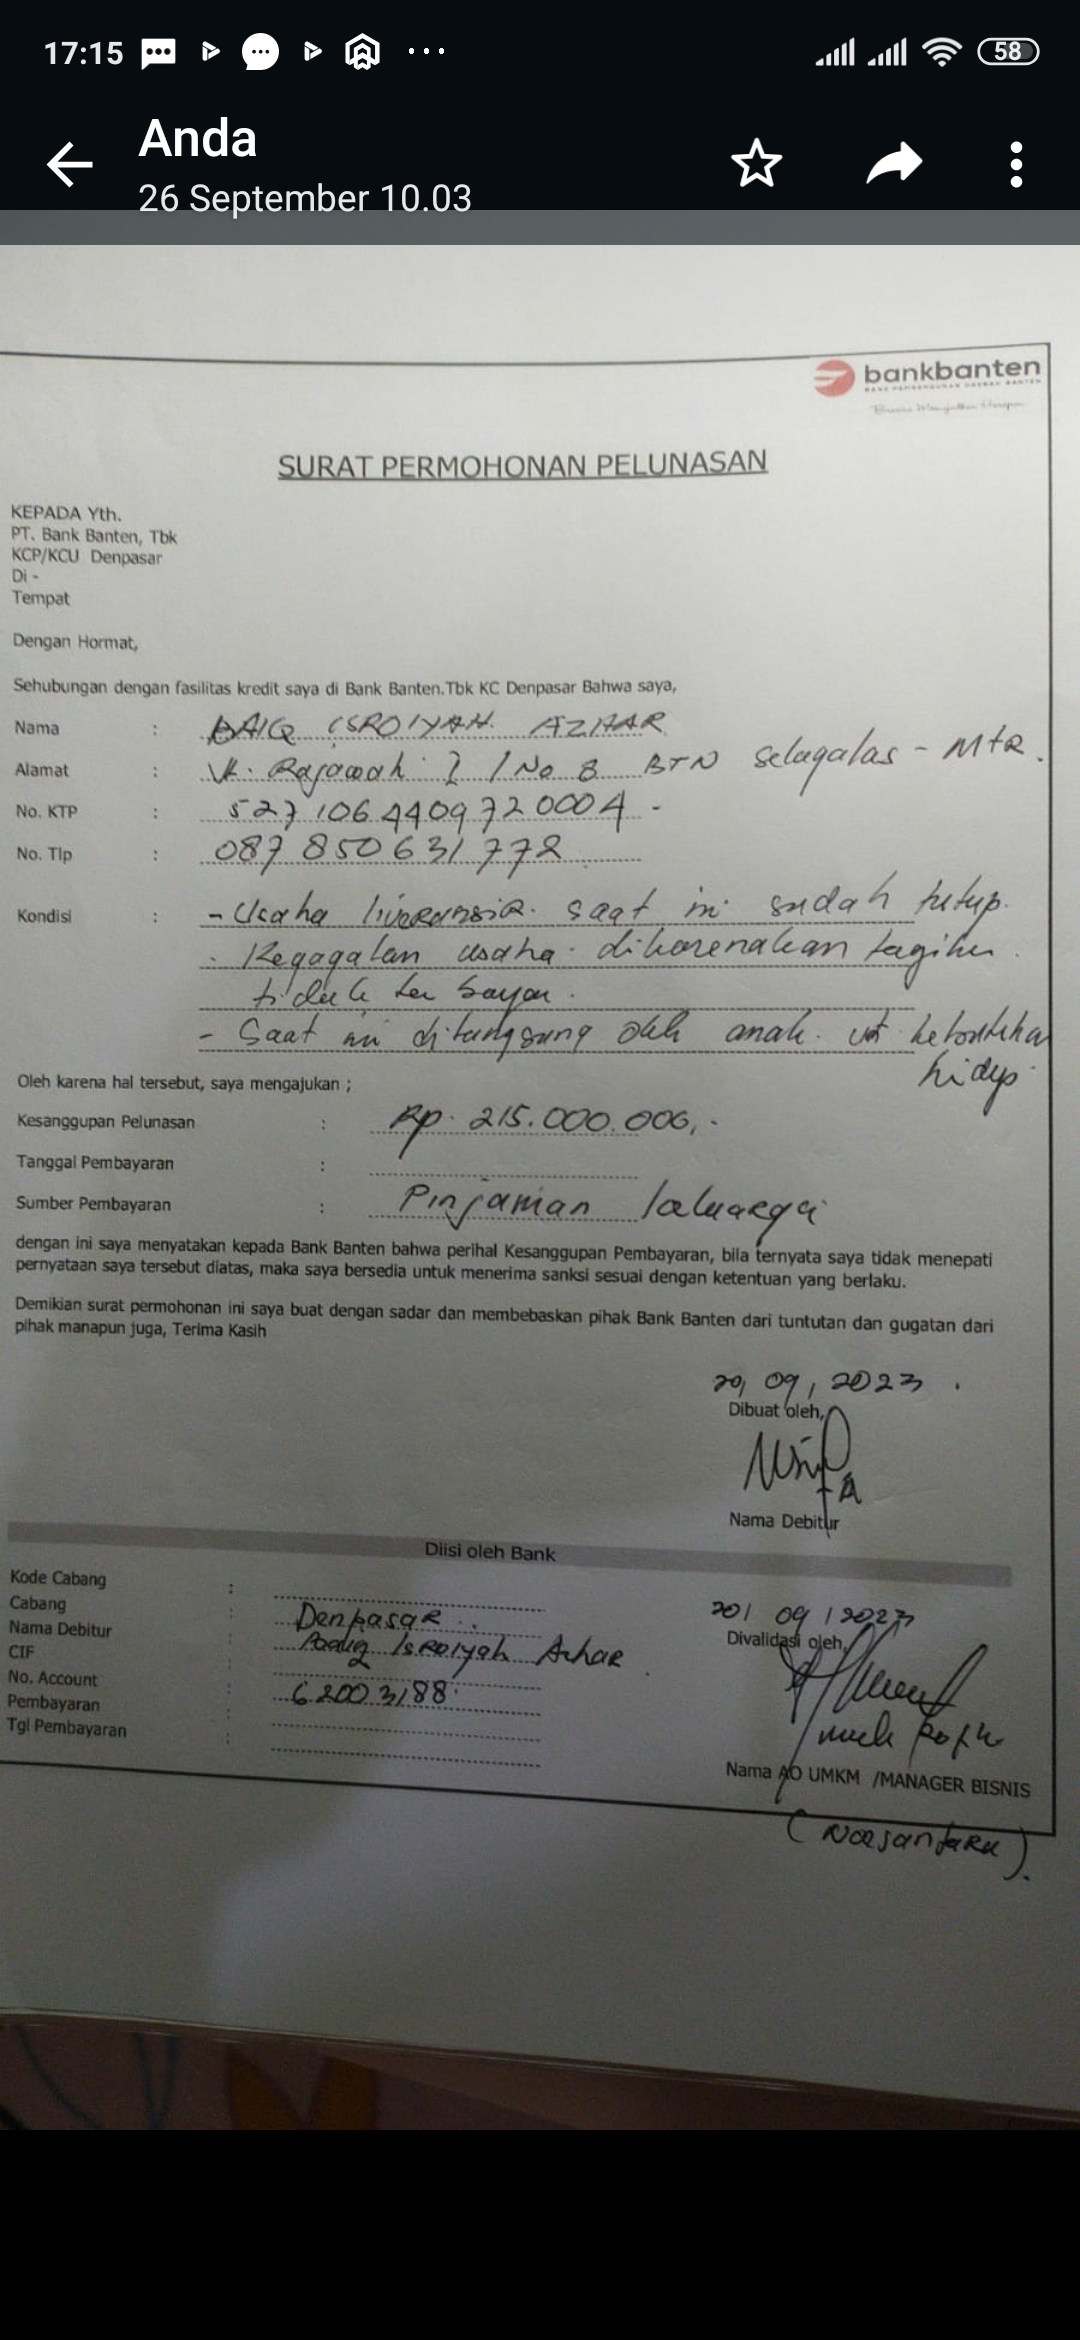 17:15
58
Anda
26 September 10.03
bankbanten
BANK PEMBANGUNAN DAERAH BANTEN
SURAT PERMOHONAN PELUNASAN
KEPADA Yth.
PT. Bank Banten, Tbk
KCP/KCU Denpasar
Di -
Tempat
Dengan Hormat,
Sehubungan dengan fasilitas kredit saya di Bank Banten.Tbk KC Denpasar Bahwa saya,
Nama : BAIQ ISROIYAH AZHAR
Alamat : No 8 BTN Selagalas - MTR.
No. KTP : 5271064409720004 -
No. Tlp : 087 850 631 772
Kondisi : - Usaha saat ini sudah tutup.
- Kegagalan usaha dikarenakan
tidak
- Saat ini ditanggung oleh anak. ut
hidup
Oleh karena hal tersebut, saya mengajukan ;
Kesanggupan Pelunasan : Rp. 215.000.000,-
Tanggal Pembayaran :
Sumber Pembayaran : Pinjaman keluarga
dengan ini saya menyatakan kepada Bank Banten bahwa perihal Kesanggupan Pembayaran, bila ternyata saya tidak menepati
pernyataan saya tersebut diatas, maka saya bersedia untuk menerima sanksi sesuai dengan ketentuan yang berlaku.
Demikian surat permohonan ini saya buat dengan sadar dan membebaskan pihak Bank Banten dari tuntutan dan gugatan dari
pihak manapun juga, Terima Kasih
20, 09, 2023.
Dibuat oleh,
Nama Debitur
Diisi oleh Bank
Kode Cabang :
Cabang : Denpasar
Nama Debitur : Baiq Isroiyah Azhar
CIF :
No. Account : 62003188
Pembayaran :
Tgl Pembayaran :
20/ 09 / 2023
Divalidasi oleh,
Nama AO UMKM /MANAGER BISNIS
(Noesantara).